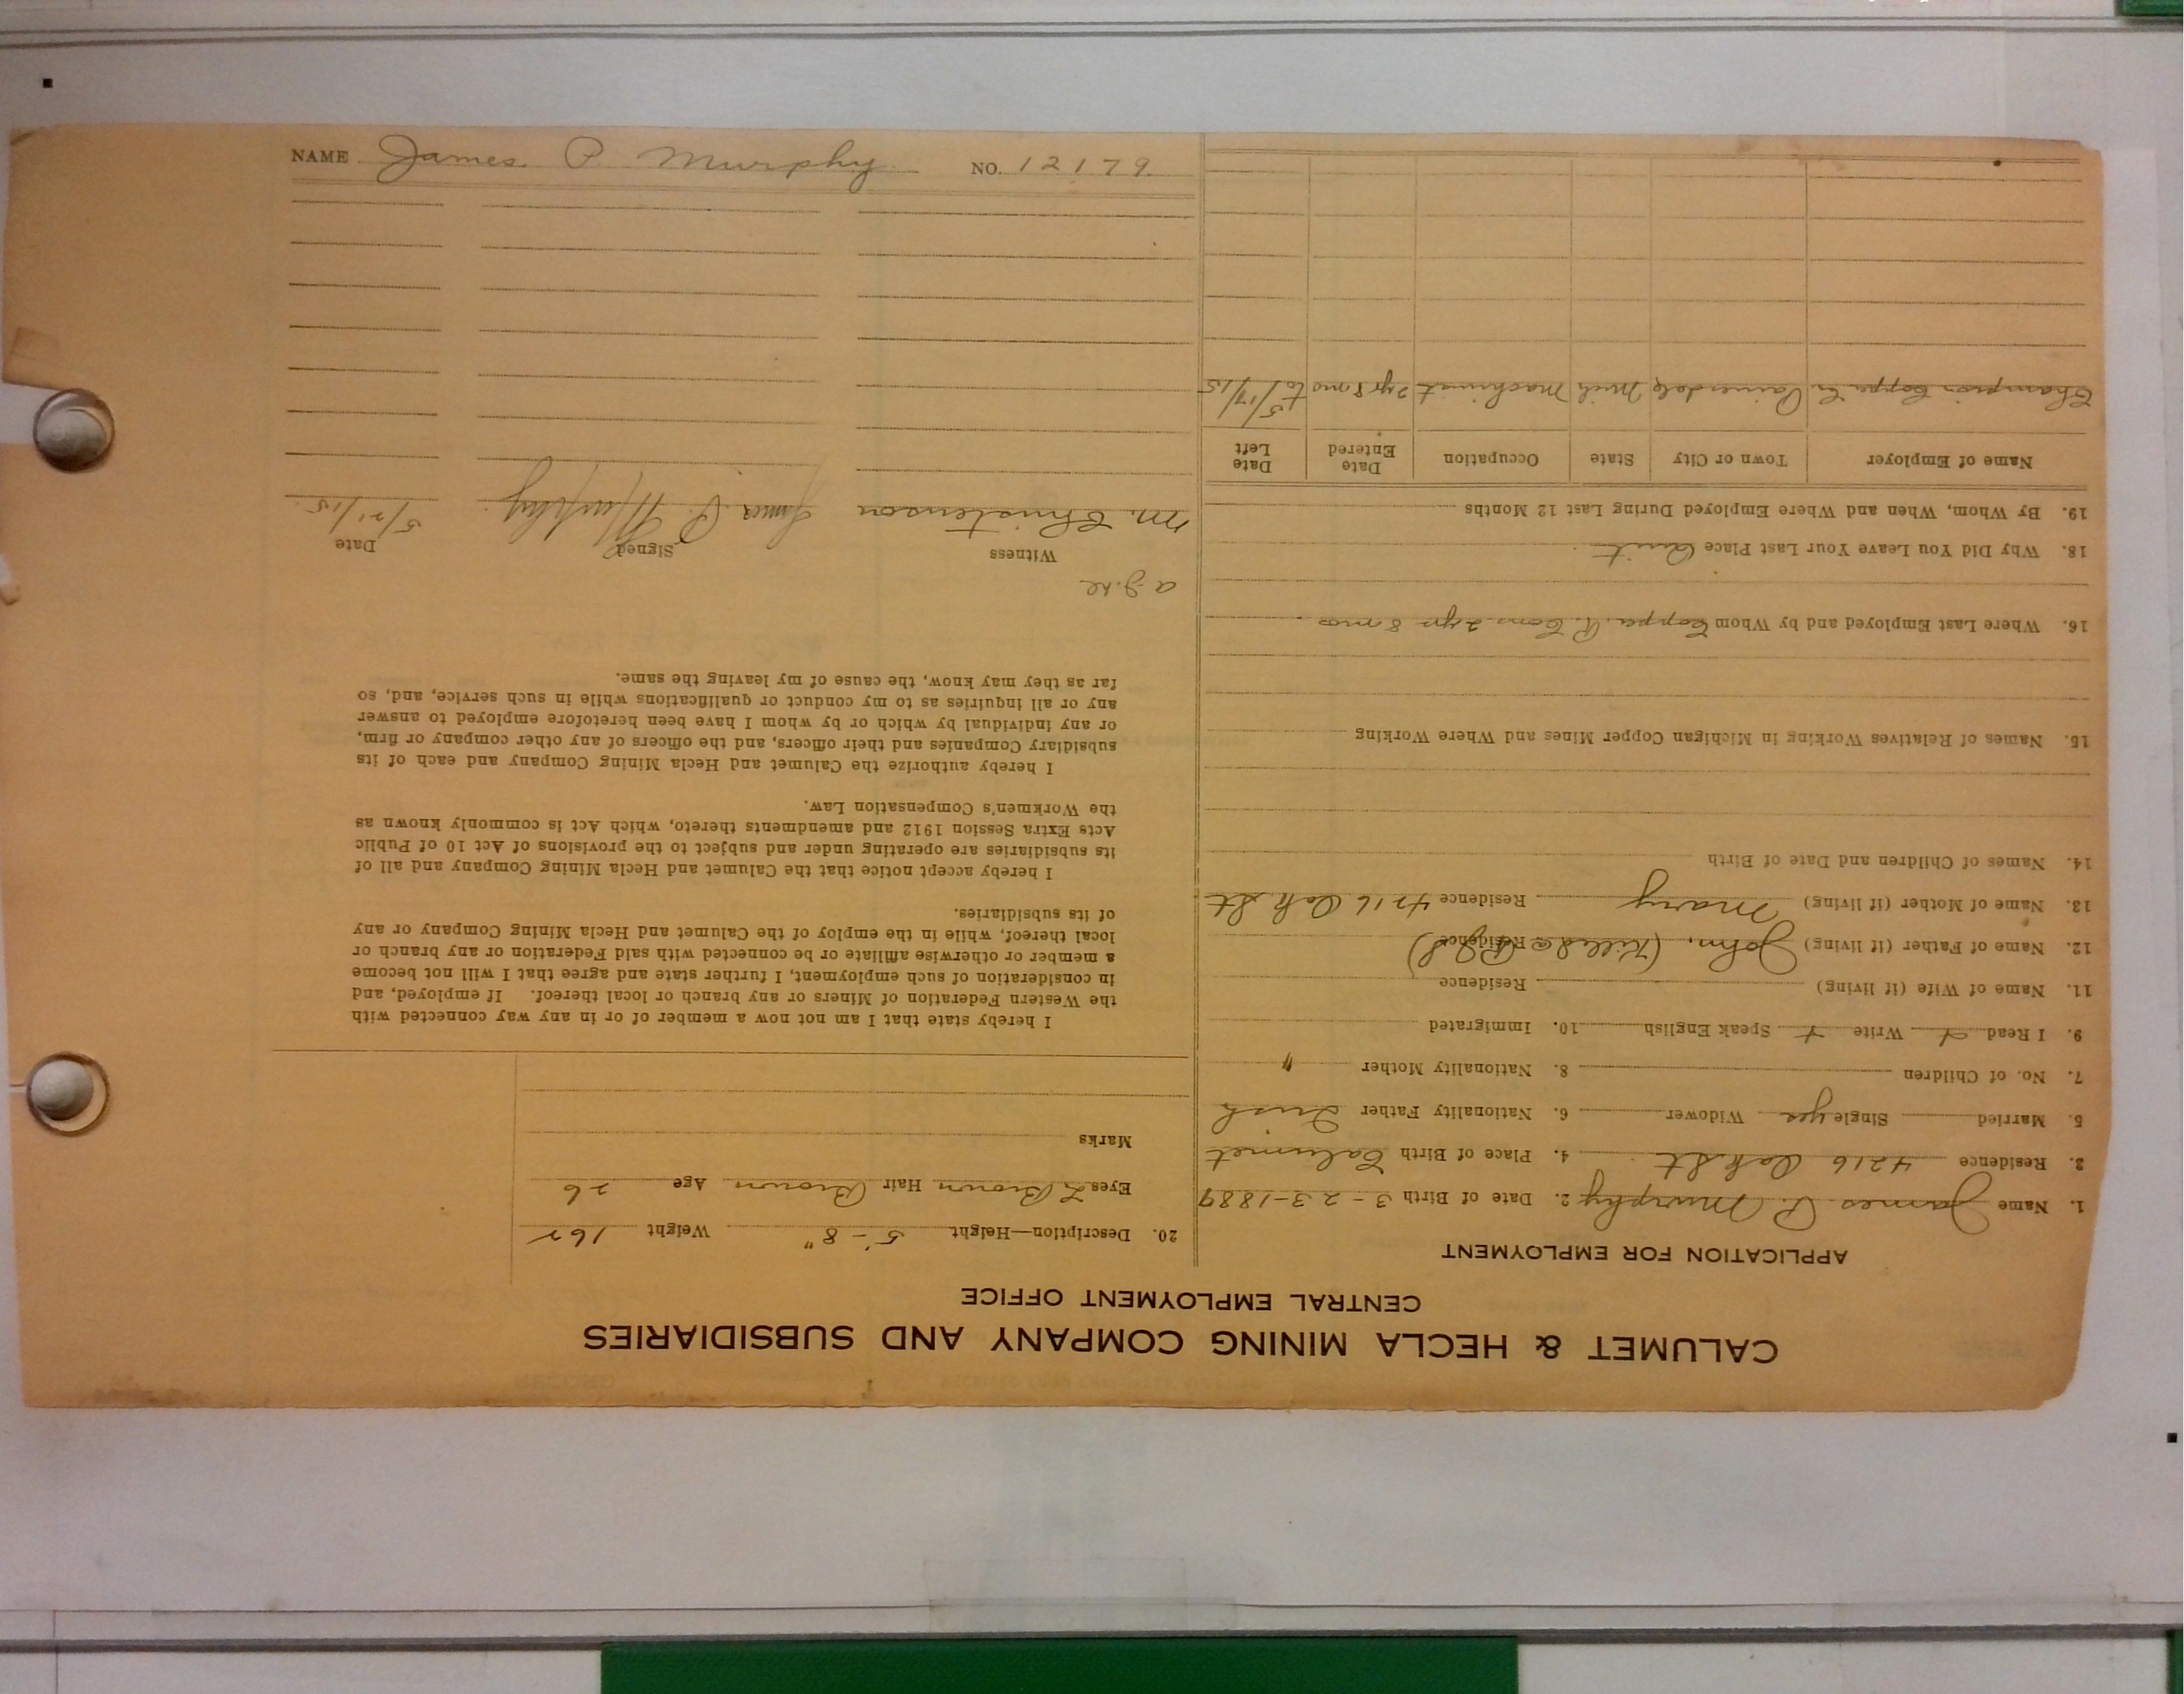 CALUMET & HECLA MINING COMPANY AND SUBSIDIARIES
CENTRAL EMPLOYMENT OFFICE
APPLICATION FOR EMPLOYMENT
1. Name James P. Murphy 2. Date of Birth 3-23-1889
3. Residence 4216 Oak St. 4. Place of Birth Calumet
5. Married Single yes Widower 6. Nationality Father Irish
7. No. of Children 8. Nationality Mother "
9. I Read + Write + Speak English 10. Immigrated
11. Name of Wife (if living) Residence
12. Name of Father (if living) John. (Killed @ Residence
13. Name of Mother (if living) Mary Residence 4216 Oak St
14. Names of Children and Date of Birth
15. Names of Relatives Working in Michigan Copper Mines and Where Working
16. Where Last Employed and by Whom Copper R. Cons 2 yrs 8 mos
18. Why Did You Leave Your Last Place Quit
19. By Whom, When and Where Employed During Last 12 Months
Name of Employer Town or City State Occupation Date Entered Date Left
Champion Copper Co. Painesdale Mich Machinist 2 yr 8 mo to 5/17/15
20. Description—Height 5'-8" Weight 165
Eyes L Brown Hair Brown Age 26
Marks
I hereby state that I am not now a member of or in any way connected with
the Western Federation of Miners or any branch or local thereof. If employed, and
in consideration of such employment, I further state and agree that I will not become
a member or otherwise affiliate or be connected with said Federation or any branch or
local thereof, while in the employ of the Calumet and Hecla Mining Company or any
of its subsidiaries.
I hereby accept notice that the Calumet and Hecla Mining Company and all of
its subsidiaries are operating under and subject to the provisions of Act 10 of Public
Acts Extra Session 1912 and amendments thereto, which Act is commonly known as
the Workmen's Compensation Law.
I hereby authorize the Calumet and Hecla Mining Company and each of its
subsidiary Companies and their officers, and the officers of any other company or firm,
or any individual by which or by whom I have been heretofore employed to answer
any or all inquiries as to my conduct or qualifications while in such service, and, so
far as they may know, the cause of my leaving the same.
Witness Signed Date
M. Christenson James P. Murphy 5/21/15
NAME James P Murphy NO. 12179